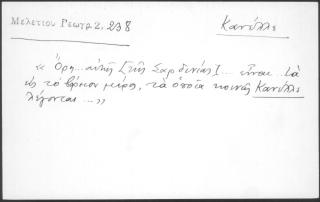 Μελετιου Γεωγρ 2, 238
Κανύλλι
« Ὄρη... αὐτῆς [τῆς Σαρδινίας]... εἶναι... τὰ
εἰς τὸ βόρειον μέρος, τὰ ὁποῖα κοινῶς Κανύλλι
λέγονται... »